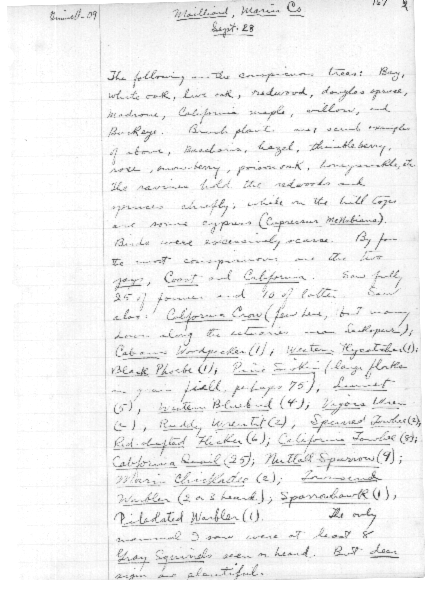 Grinnell-09
Mailliard, Marin Co
167
Sept. 28
The following are the conspicuous trees: Bay,
white oak, live oak, redwood, douglas spruce,
madrone, California maple, willow, and
Buckeye. Brush plants are, scrub examples
of above, Baccharis, hazel, thimbleberry,
rose, snowberry, poison oak, honeysuckle, etc.
The ravines hold the redwoods and
spruces chiefly, while on the hill tops
are some cypress (Cupressus McNabiana).
Birds were excessively scarce. By far
the most conspicuous are the two
jays, Coast and California. Saw fully
25 of former and 10 of latter. Saw
also: California Crow (few here, but many
down along the estuaries near Sausalito);
Cabanis Woodpecker (1); Western Flycatcher (1);
Black Phoebe (1), Pine Siskin (large flocks
in grain field, perhaps 75), Linnet
(5), Western Bluebird (4), Vigors Wren
(2), Ruddy Wrentit (2), Spurred Towhee (2),
Red-shafted Flicker (6); California Towhee (8);
California Quail (25); Nuttall Sparrow (9);
Marin Chickadee (2); Townsend
Warbler (2 or 3 heard); Sparrowhawk (1),
Pileolated Warbler (1). The only
mammal I saw were at least 8
Gray Squirrels seen or heard. But deer
sign are abundant.